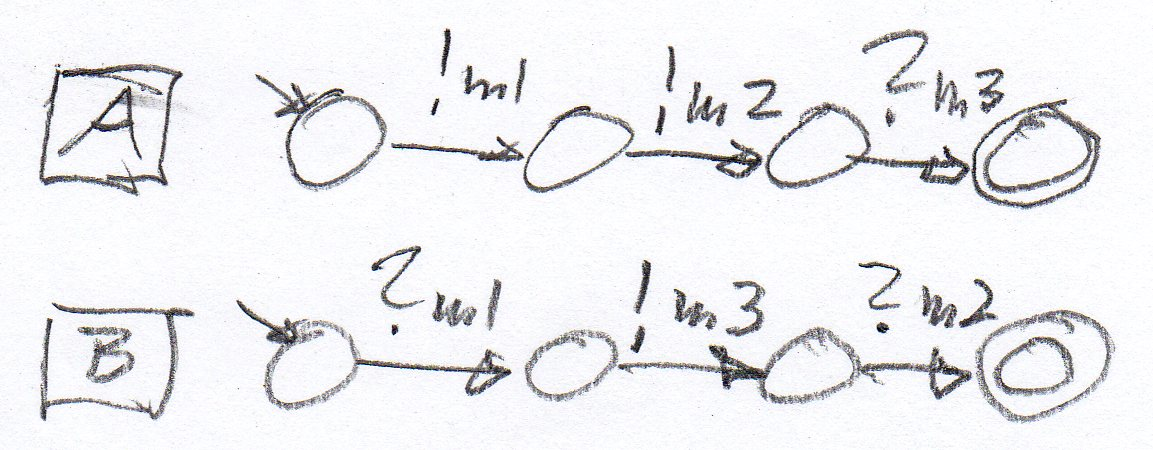 A !m1 !m2 ?m3
B ?m1 !m3 ?m2